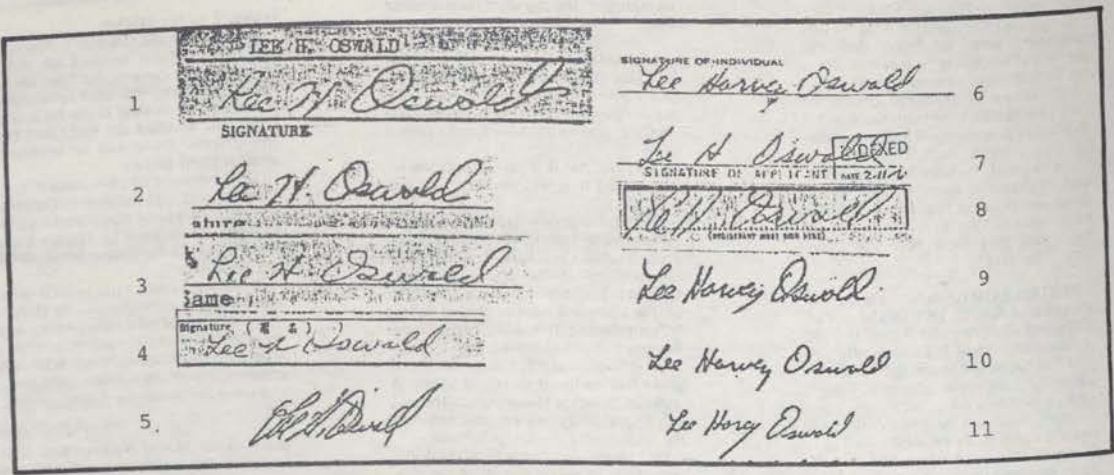 LEE H. OSWALD
1 Lee H Oswald
SIGNATURE
2 Lee H. Oswald
3 Lee H. Oswald
Same
Signature
4 Lee H Oswald
5. Lee H. Oswald
SIGNATURE OF INDIVIDUAL
Lee Harvey Oswald 6
Lee H Oswald INDEXED 7
SIGNATURE OF APPLICANT DATE 2-11
Lee H. Oswald 8
(REGISTRANT MUST SIGN HERE)
Lee Harvey Oswald 9
Lee Harvey Oswald 10
Lee Harvey Oswald 11